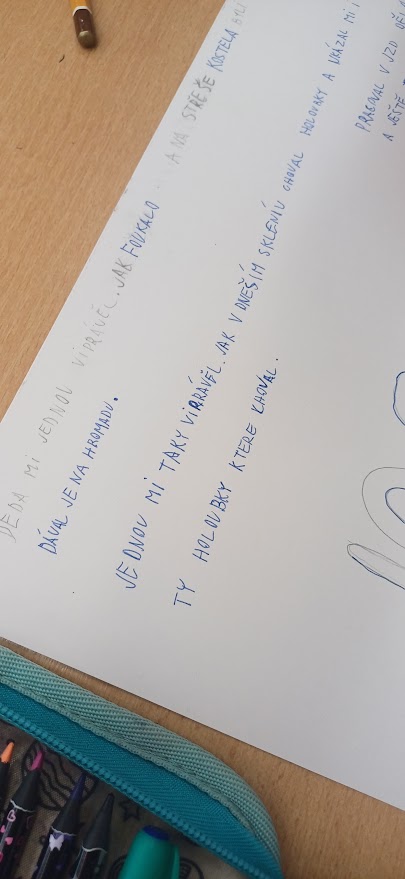 DĚDA MI JEDNOU VIPRÁVĚL. JAK FOUKALO A NA STŘEŠE KOSTELA
DÁVAL JE NA HROMADU.
JEDNOU MI TAKY VIPRÁVĚL. JAK V DNEŠÍM SKLENÍU CHOVAL HOLOUBKY A UKÁZAL MI I
TY HOLOUBKY KTERE CHOVAL.
PRACOVAL V JZD
A JEŠTĚ